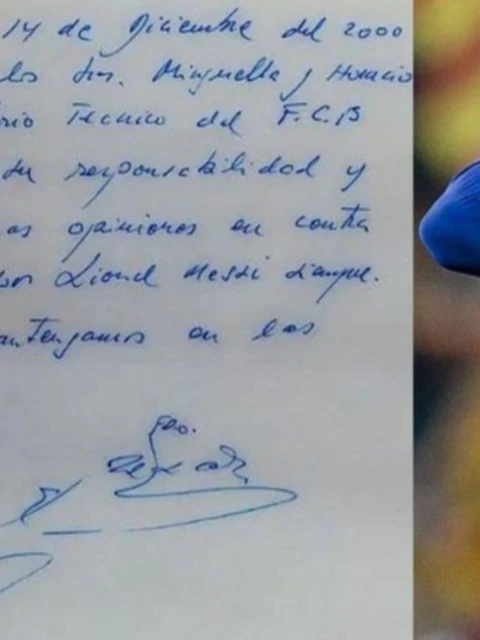 14 de Diciembre del 2000
los Srs. Minguella y Horacio
rio Tecnico del F.C.B
su responsabilidad y
as opiniones en contra
Lionel Messi siempre.
antengamos en las